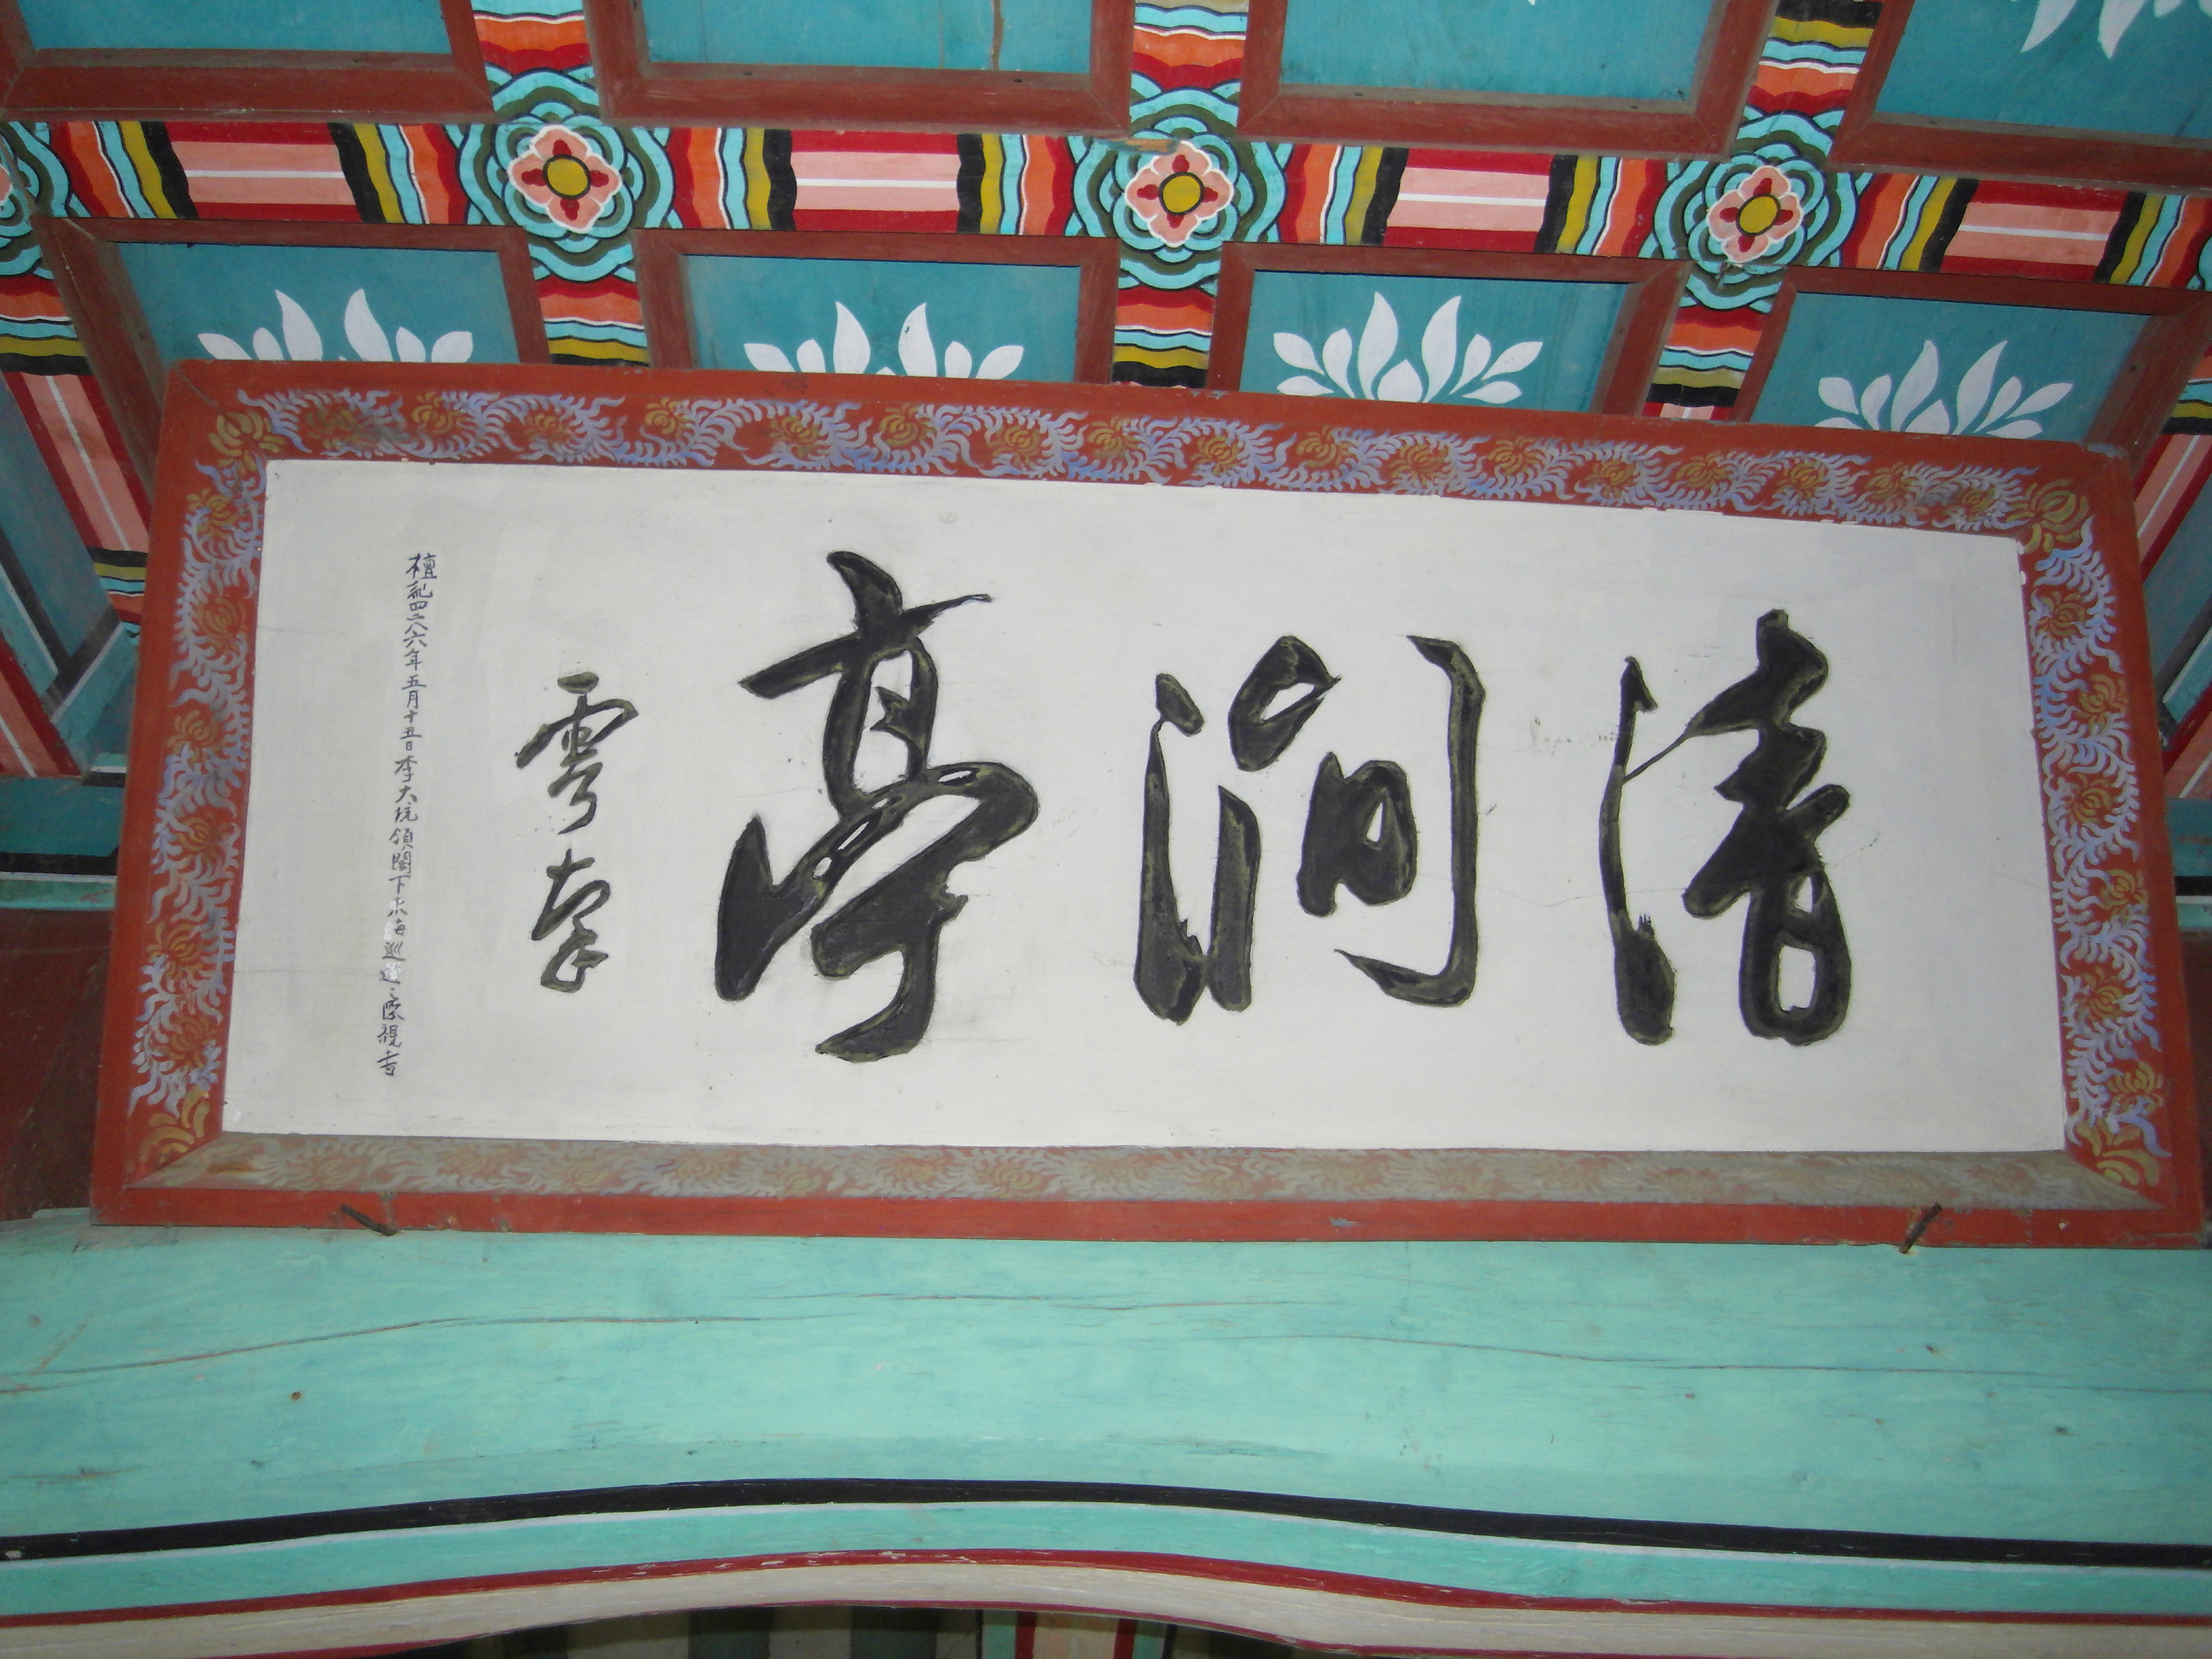 清澗亭
雩南
檀紀四二八六年五月十五日李大統領閣下東海巡遊之際親書